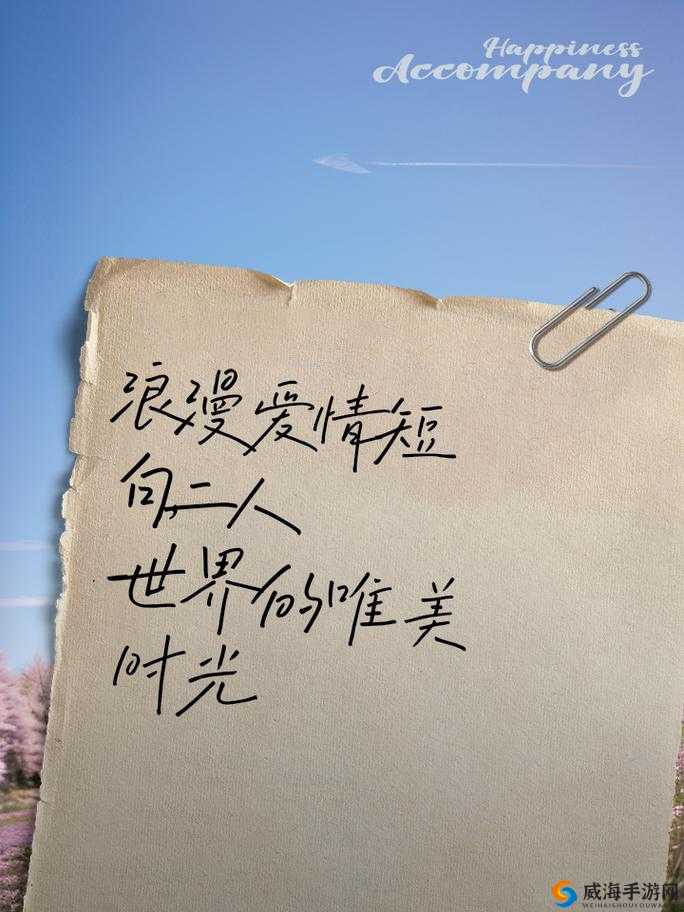 Happiness
Accompany
浪漫爱情短
句,二人
世界的唯美
时光
威海手游网
WEIHAISHOUYOUWANG